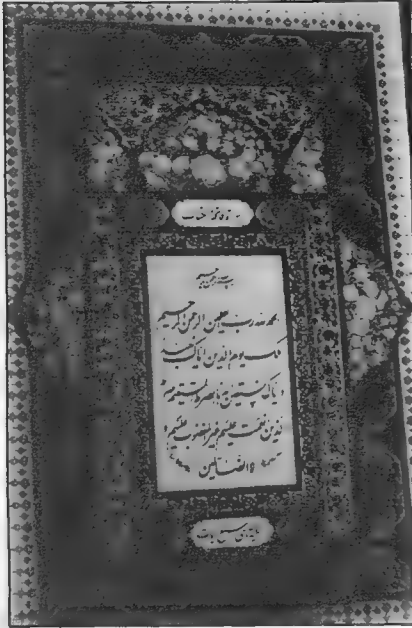 سورة فاتحة الكتاب
بسم الله الرحمن الرحيم
الحمد لله رب العلمين الرحمن الرحيم
ملك يوم الدين اياك نعبد
و اياك نستعين اهدنا الصراط المستقيم صراط
الذين انعمت عليهم غير المغضوب عليهم و
لا الضالين